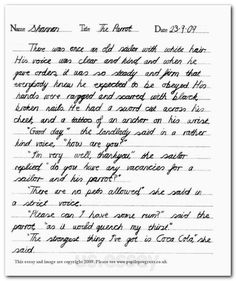 Name Shannon Title The Parrot Date 23.9.09
There was once an old sailor with white hair.
His voice was clear and kind and when he
gave orders, it was so steady and firm that
everybody knew he expected to be obeyed. His
hands were ragged and scarred with black,
broken nails. He had a sword cut across his
cheek and a tattoo of an anchor on his wrist.
"Good day", the landlady said in a rather
kind voice, "how are you?"
"I'm very well, thankyou," the sailor
replied "do you have any vacancies for a
sailor and his parrot?"
"There are no pets allowed", she said in
a strict voice.
"Please can I have some rum?" said the
parrot, "as it would quench my thirst."
"The strongest thing I've got is Coca Cola" she
said.
This essay and image are copyright 2009. Please see www.pupilsprogress.co.uk